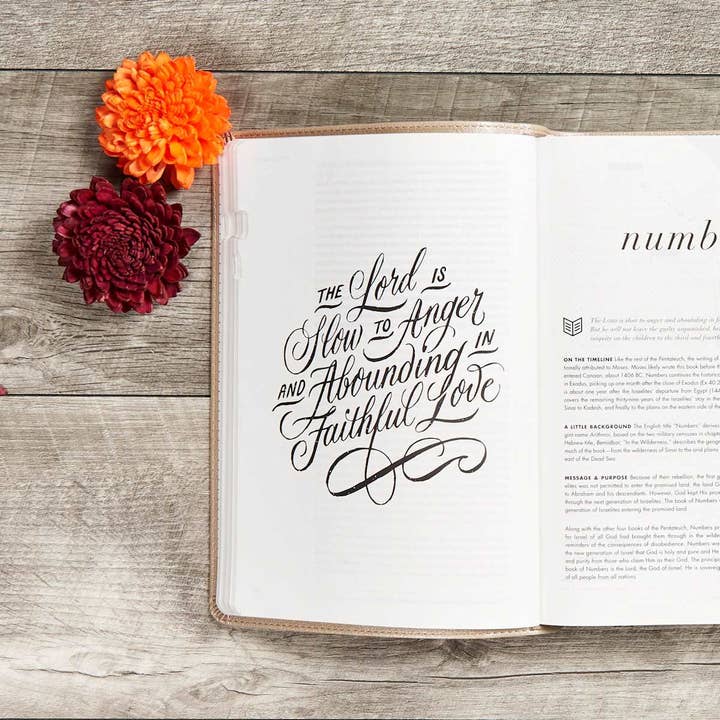 THE Lord IS
Slow TO Anger
AND Abounding IN
Faithful Love
numb
The LORD is slow to anger and abounding in f
But he will not leave the guilty unpunished, br
iniquity on the children to the third and fourth
ON THE TIMELINE Like the rest of the Pentateuch, the writing of
tionally attributed to Moses. Moses likely wrote this book before th
entered Canaan, about 1406 BC. Numbers continues the historica
in Exodus, picking up one month after the close of Exodus (Ex 40:2
is about one year after the Israelites' departure from Egypt (144
covers the remaining thirty-nine years of the Israelites' stay in the
Sinai to Kadesh, and finally to the plains on the eastern side of the
A LITTLE BACKGROUND The English title "Numbers" derives
gint name Arithmoi, based on the two military censuses in chapters
Hebrew title, Bemidbar, "In the Wilderness," describes the geogra
much of the book—from the wilderness of Sinai to the arid plains
east of the Dead Sea.
MESSAGE & PURPOSE Because of their rebellion, the first g
elites was not permitted to enter the promised land, the land G
to Abraham and his descendants. However, God kept His pro
through the next generation of Israelites. The book of Numbers
generation of Israelites entering the promised land.
Along with the other four books of the Pentateuch, Numbers pr
for Israel of all God had brought them through in the wildern
reminders of the consequences of disobedience. Numbers wa
the new generation of Israel that God is holy and pure and He
and purity from those who claim Him as their God. The princip
book of Numbers is the Lord, the God of Israel. He is sovereig
of all people from all nations.